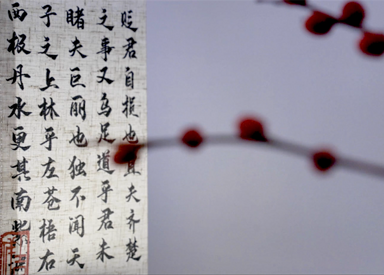 贬君自损也且夫齐楚
之事又乌足道乎君未
睹夫巨丽也独不闻天
子之上林乎左苍梧右
西极丹水更其南紫渊